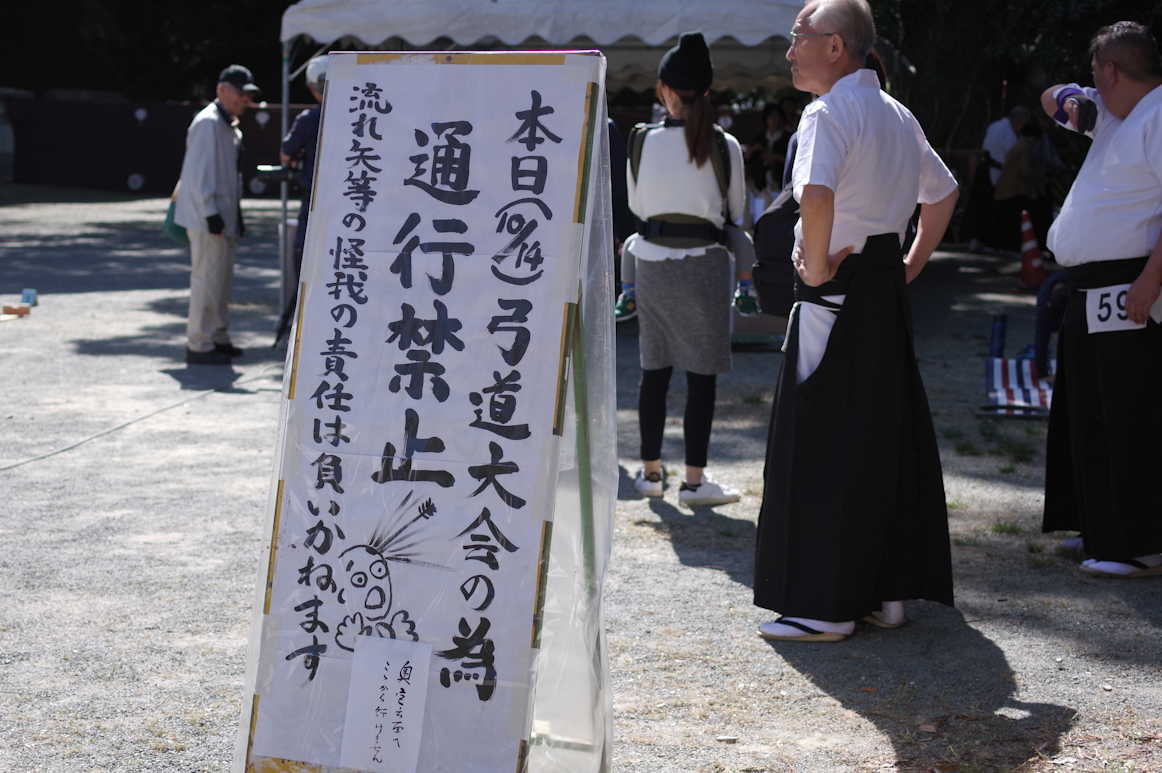 本日(10/14)弓道大会の為
通行禁止
流れ矢等の怪我の責任は負いかねます
ここから行けません
59